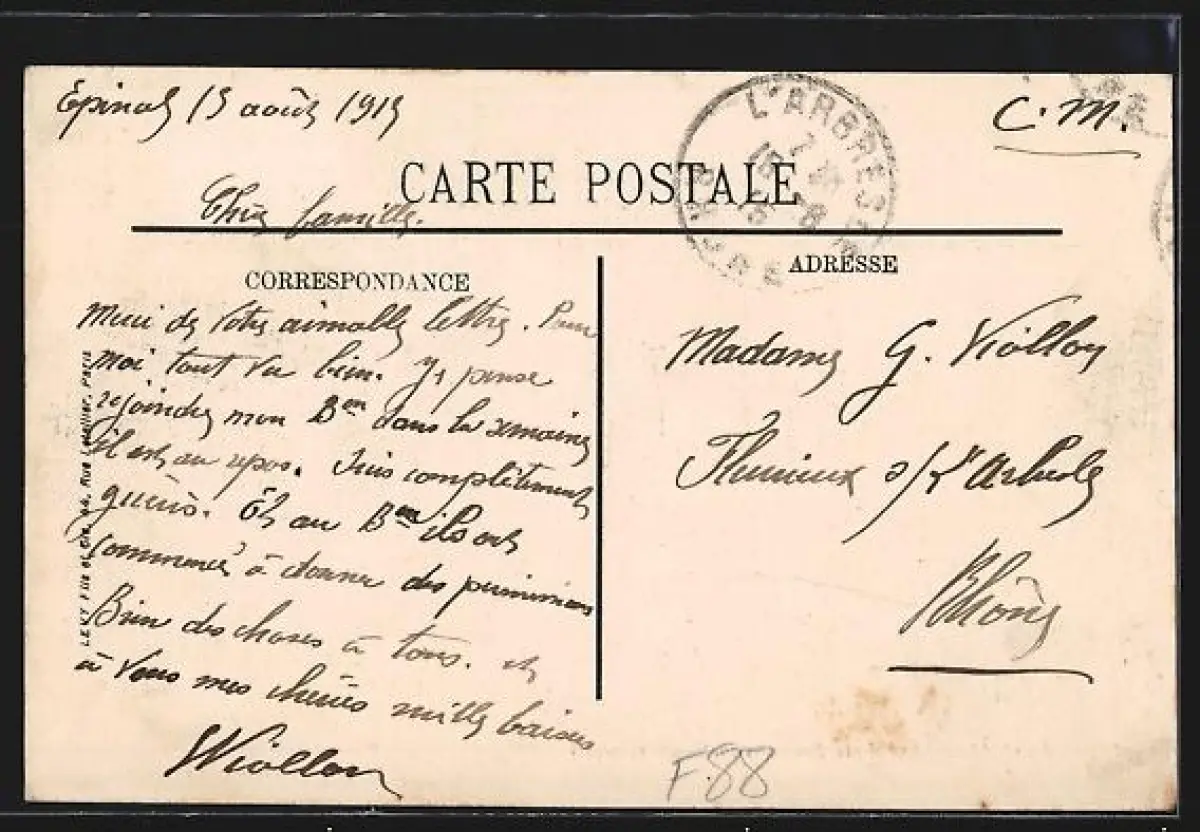 Epinal 15 août 1915
C. M.
L'ARBRESLE
RHONE
CARTE POSTALE
Chère famille.
CORRESPONDANCE
Merci de votre aimable lettre. Pour
moi tout va bien. J'y pense
rejoindre mon Bon dans la semaine
il est au repos. Suis complètement
guéris. Et au Bon ils ont
commencé à donner des permissions
Bien des choses à tous. et
à vous mes chéries mille baisers
Viollon
LEVY Fils et Cie, 44, Rue Letellier, PARIS
ADRESSE
Madame G. Viollon
Fleurieux s/ L'Arbresle
Rhône
F.88